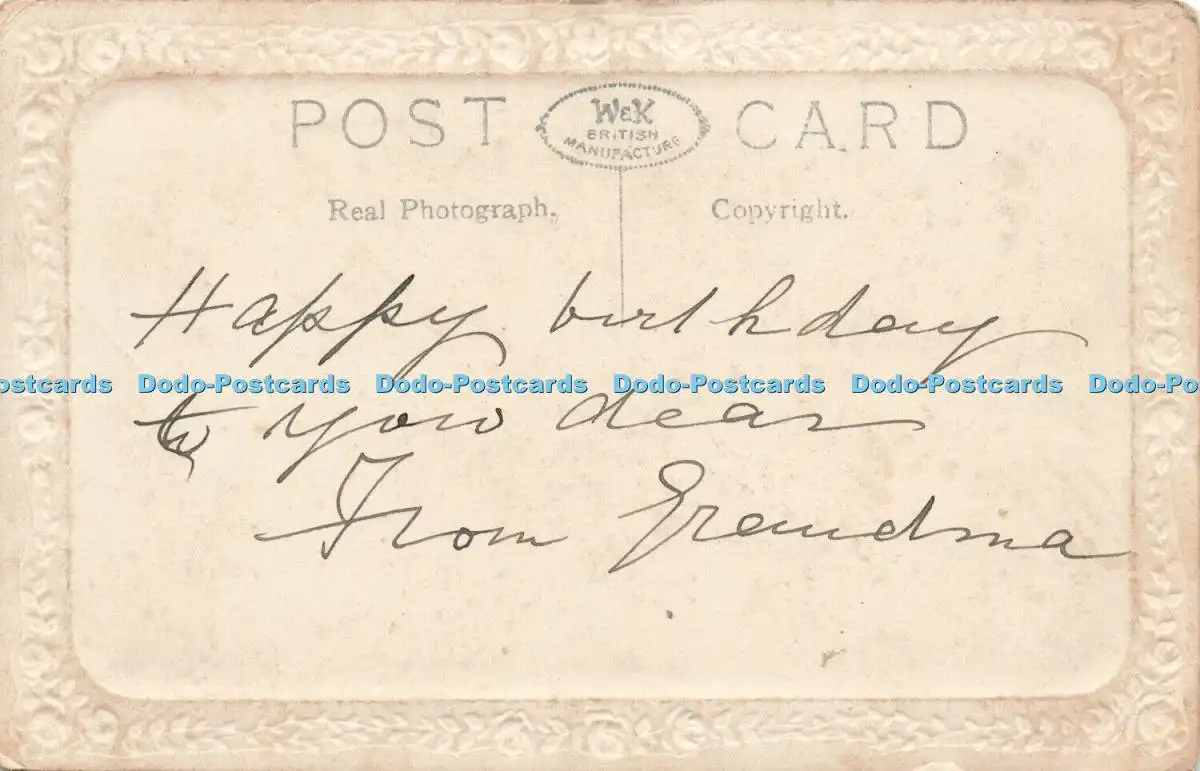 POST CARD
W&K
BRITISH
MANUFACTURE
Real Photograph, Copyright.
Happy birthday
ostcards Dodo-Postcards Dodo-Postcards Dodo-Postcards Dodo-Postcards Dodo-Po
to you dear
From Grandma